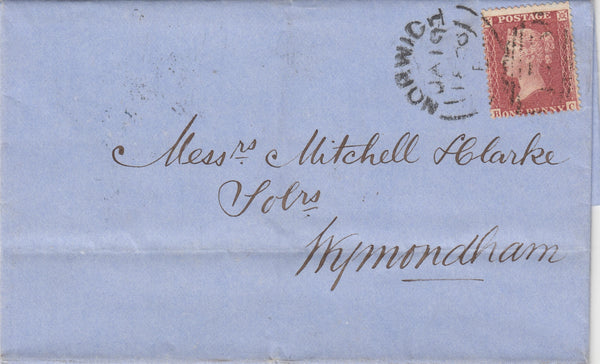 POSTAGE
ONE PENNY
R C
NORWICH
JA 15
Messrs Mitchell & Clarke
Solrs
Wymondham